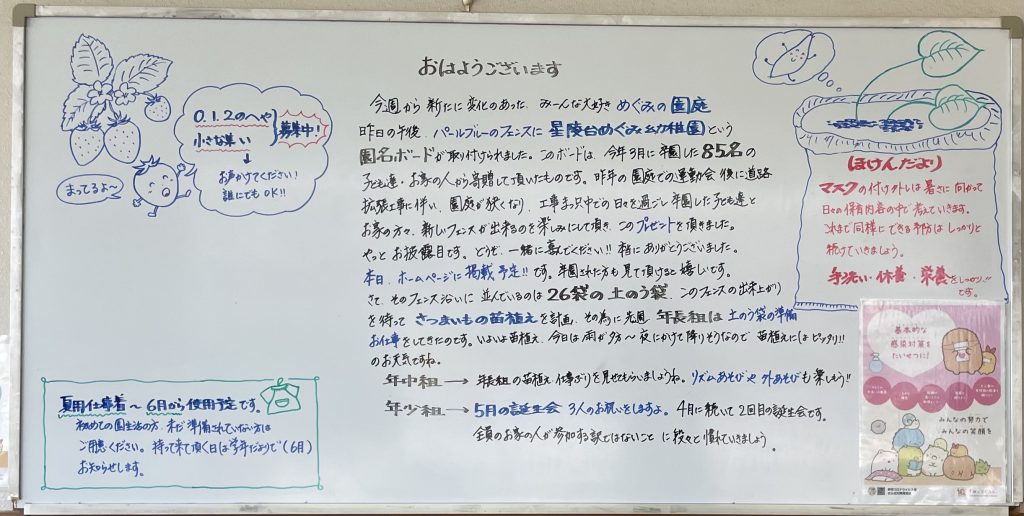 おはようございます
今週から新たに変化のあった、みーんな大好きめぐみの園庭
昨日の午後、パールブルーのフェンスに星陵台めぐみ幼稚園という
園名ボードが取り付けられました。このボードは、今年3月に卒園した85名の
子ども達・お家の人から寄贈して頂いたものです。昨年の園庭での運動会後に道路
拡張工事に伴い、園庭が狭くなり、工事まっ只中での日々を過ごし卒園した子ども達と
お家の方々、新しいフェンスが出来るのを楽しみにして頂き、このプレゼントを頂きました。
やっとお披露目です。どうぞ、一緒に喜んでください!!本当にありがとうございました。
本日、ホームページに掲載予定!!です。卒園された方も見て頂けると嬉しいです。
さて、そのフェンス沿いに並んでいるのは26袋の土のう袋、このフェンスの出来上がり
を待ってさつまいもの苗植えを計画、その為に先週、年長組は土のう袋の準備
お仕事をしてきたのです。いよいよ苗植え、今日は雨が夕方〜夜にかけて降りそうなので苗植えにはピッタリ!!
のお天気ですね。
年中組→年長組の苗植え仕事ぶりを見せてもらいましょうね。リズムあそびや外あそびも楽しもう!!
年少組→5月の誕生会 3人のお祝いをしますよ。4月に続いて2回目の誕生会です。
全員のお家の人が参加する訳ではないことに段々と慣れていきましょう。
0.1.2のへや
小さな集い
募集中!
↓
お声かけてください!
誰にでもOK!!
まってるよ〜
夏用仕事着〜6月から使用予定です。
初めての園生活の方、まだ準備されていない方は
ご用意ください。持って来て頂く日は学年だよりで(6月)
お知らせします。
ほけんだより
マスクの付け外しは暑さに向かって
日々の保育内容の中で考えていきます。
これまで同様にできる予防はしっかりと
続けていきましょう。
手洗い・休養・栄養をしっかり!!
です。
基本的な
感染対策を
たいせつに!
みんなの努力で
みんなの笑顔を